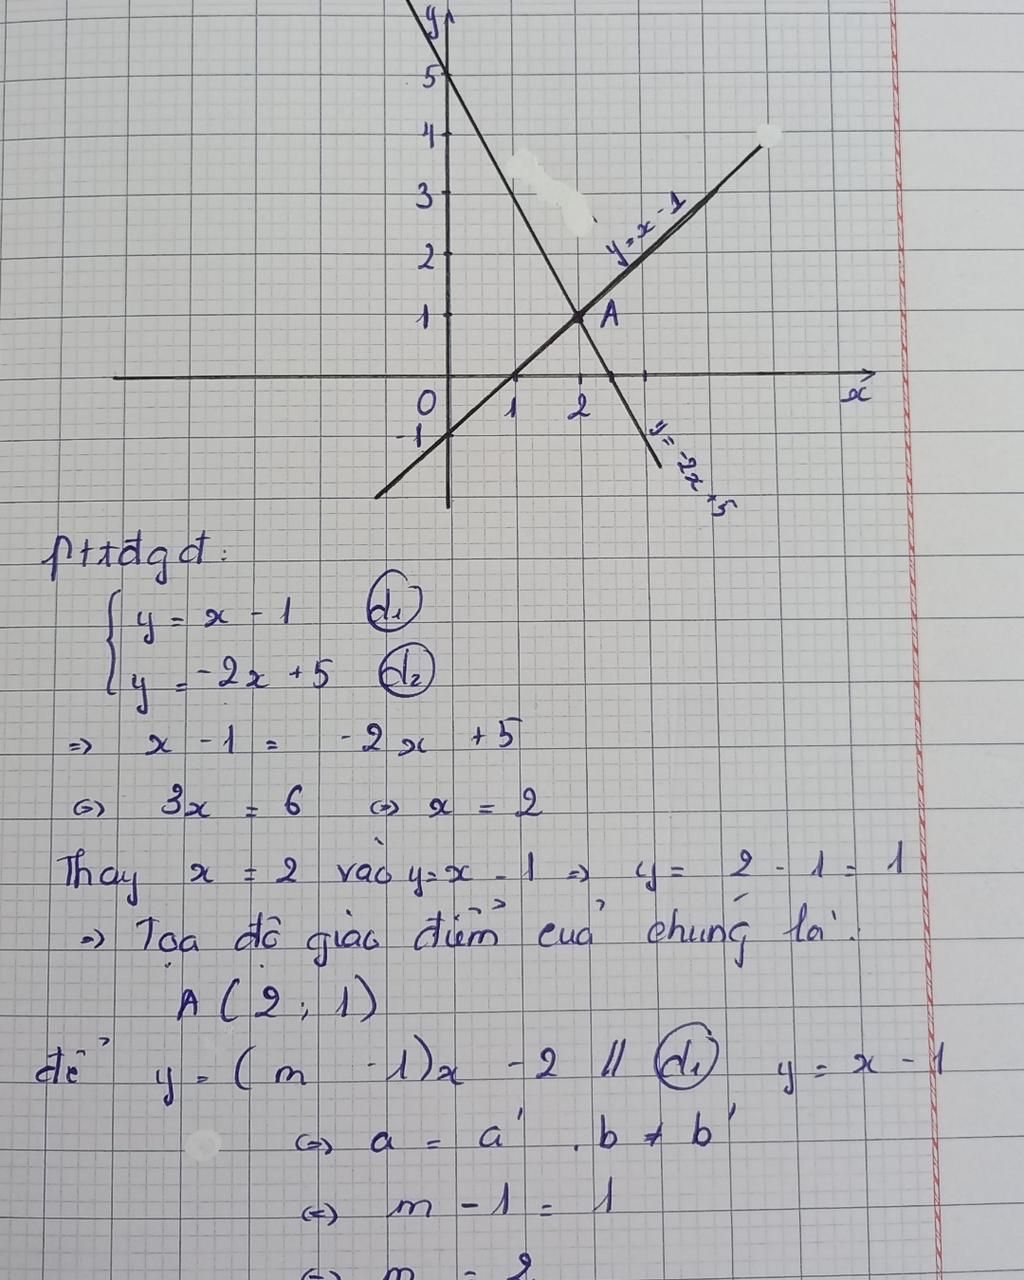 y
5
4
3
2
1
y = x - 1
A
0 1 2 x
-1
y = -2x + 5
pttđgđ:
{ y = x - 1 (d₁)
y = -2x + 5 (d₂)
=> x - 1 = -2x + 5
<=> 3x = 6 <=> x = 2
Thay x = 2 vào y = x - 1 => y = 2 - 1 = 1
=> Tọa độ giao điểm của chúng là:
A (2; 1)
để y = (m - 1)x - 2 // (d₁) y = x - 1
<=> a = a' . b ≠ b'
<=> m - 1 = 1
<=> m = 2